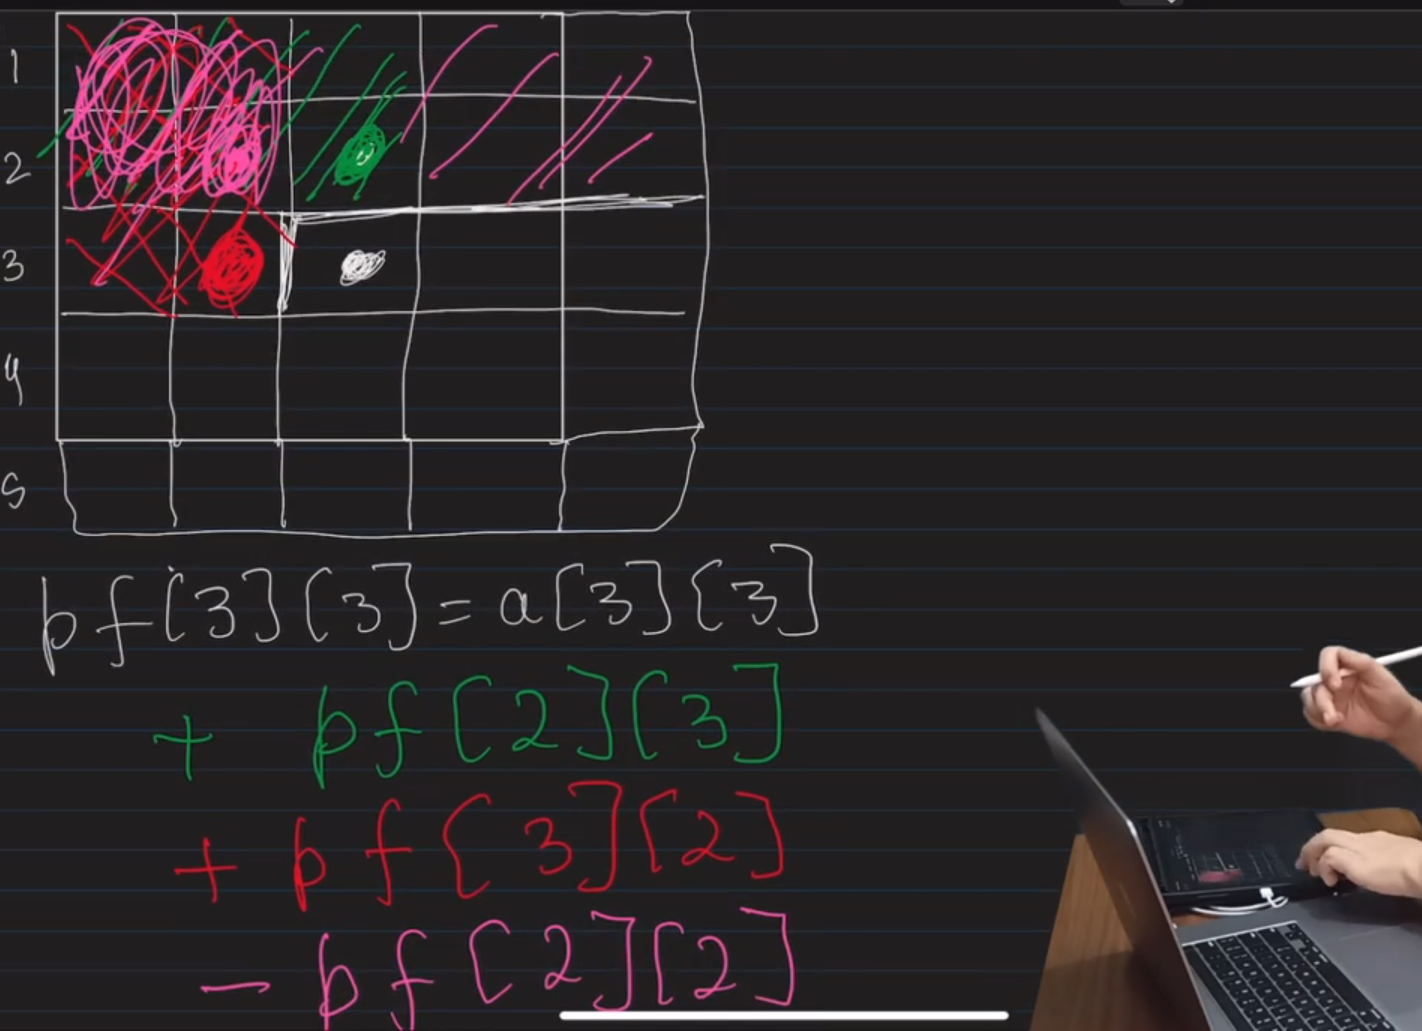 1
2
3
4
5
pf[3][3] = a[3][3]
+ pf[2][3]
+ pf[3][2]
- pf[2][2]